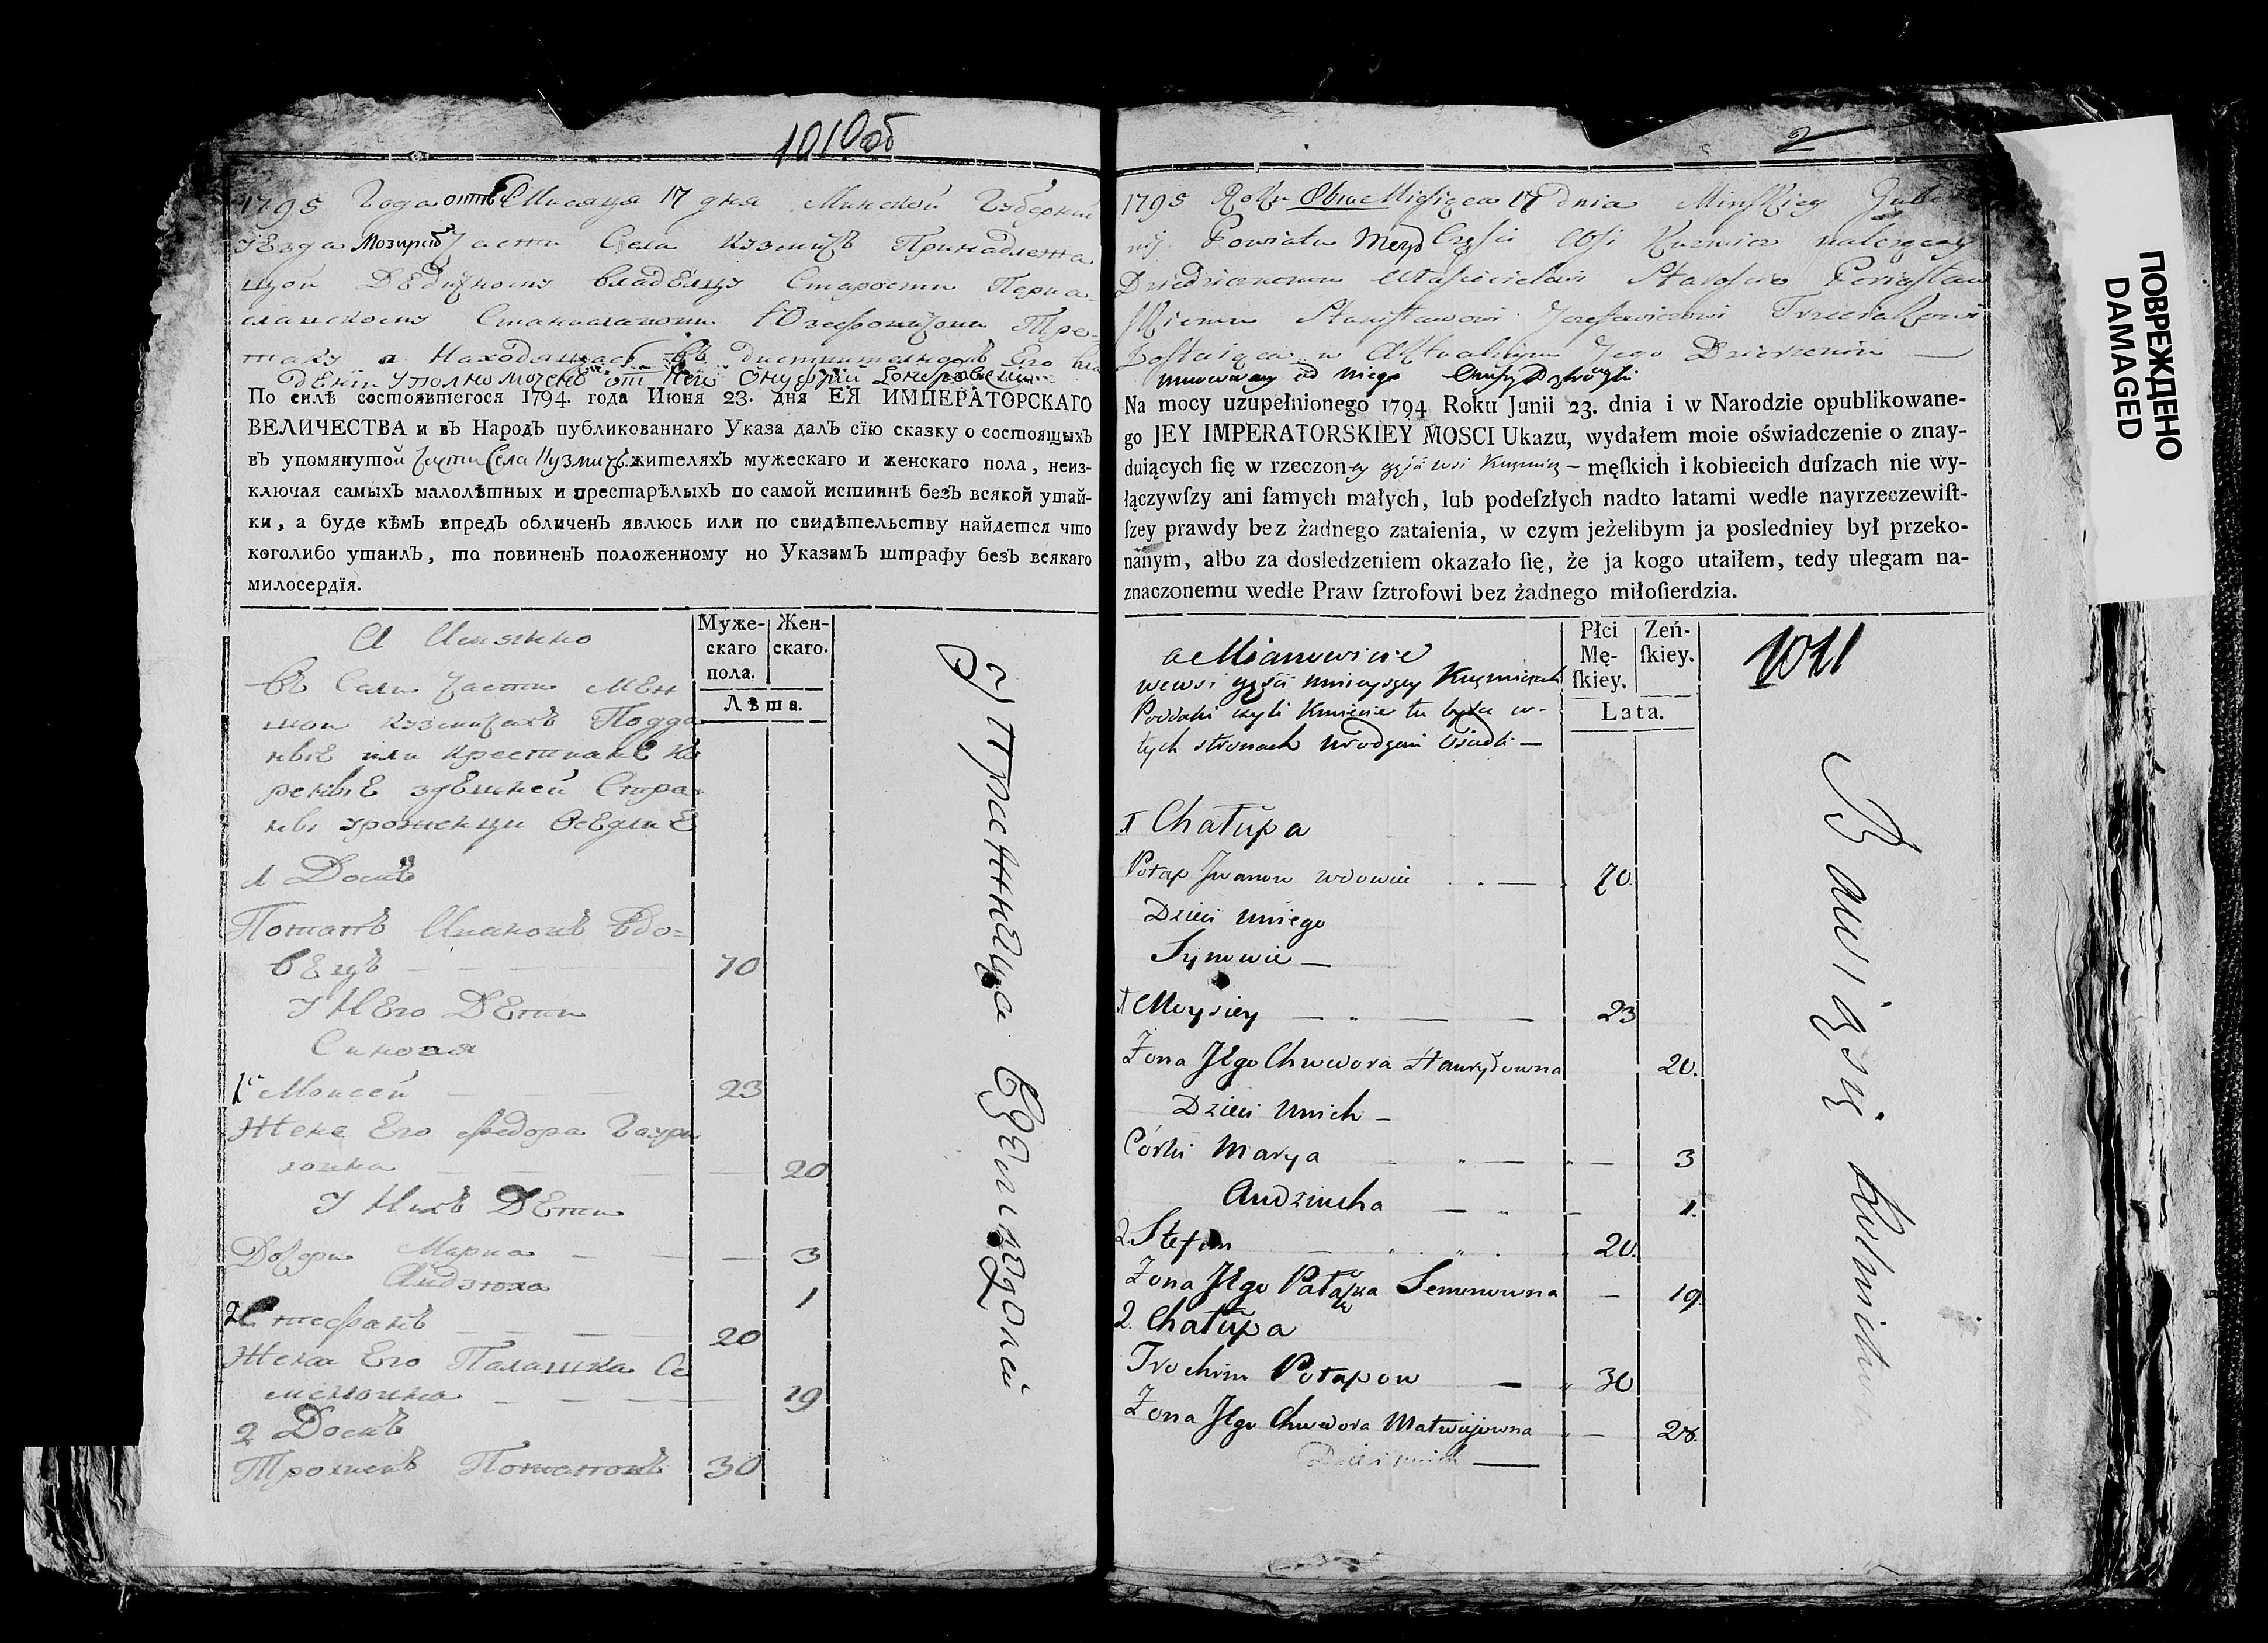 1010об
1795 Года Месяца 17 дня Минской Губернии
уезда Мозирс части Села Кузмичъ Принадлежа
щой Дедичному владелцу Старости Перея-
славскому Станиславови Юзефовичови Тре-
тяку а Находящаясъ въ его вла
дении уполномоченъ от него Онуфрий
По силѣ состоявшегося 1794. года Июня 23. дня ЕЯ ИМПЕРАТОРСКАГО
ВЕЛИЧЕСТВА и въ Народъ публикованнаго Указа далъ сїю сказку о состоящыхъ
въ упомянутой части Села Кузмичъ жителяхъ мужескаго и женскаго пола, неиз-
ключая самыхъ малолѣтныхъ и престарѣлыхъ по самой истиннѣ безъ всякой утай-
ки, а буде кѣмъ впредъ обличенъ явлюсь или по свидѣтельству найдется что
коголибо утаилъ, то повиненъ положенному по Указамъ штрафу безъ всякаго
милосердїя.
Муже-
скаго
пола.
Жен-
скаго.
Лѣта.
А Имянно
въ Сели части Мен
шой Кузмичахъ Подда
ные или крестьяне ко
ренные здешней Старо
ны уроженци оседлие
1 Домъ
Потапъ Ивановъ Вдо-
вецъ 70
У Него Дети
Синовя
1 Моисей 23
Жена Его Федора Гаври
ловна 20
У Нихъ Дети
Дочери Мария 3
Авдзюха 1
2 Стефанъ 20
Жена Его Палашка Се
меновна 19
2 Домъ
Трохимъ Потаповъ 30
2
1795 Roku Miesiąca 17 dnia Minſkiey Guber
nij Powiatu Mozyr Częſci Wsi Kuzmicz należącey
Dziedzicznemu Właſcicielowi Staroſcie Periasław
ſkiemu Stanisławowi Jozefowiczowi Trzeciakowi
zoſtaiąca w Aktualnym Jego Dzierżeniu —
umocowany od niego
Na mocy uzupełnionego 1794 Roku Junii 23. dnia i w Narodzie opublikowane-
go JEY IMPERATORSKIEY MOSCI Ukazu, wydałem moie oświadczenie o znay-
duiących ſię w rzeczoney częſci wsi Kuzmicz – męſkich i kobiecich duſzach nie wy-
łączywſzy ani ſamych małych, lub podeſzłych nadto latami wedle nayrzeczewiſt-
ſzey prawdy bez żadnego zataienia, w czym jeżelibym ja posledniey był przeko-
nanym, albo za dosledzeniem okazało ſię, że ja kogo utaiłem, tedy ulegam na-
znaczonemu wedle Praw ſztrofowi bez żadnego miłoſierdzia.
Płci
Mę-
ſkiey.
Zeń-
ſkiey.
Lata.
1011
a Mianowicie
we wsi części mnieyszey Kuzmiczach
Poddani czyli Kmiecie tu w
tych stronach urodzeni Osiedli —
1 Chałupa
Potap Jwanow wdowiec 70.
Dzieci u niego
Synowie —
1 Moysiey 23
Żona Jego Chwedora Hawryłowna 20.
Dzieci u nich –
Córki Marya 3
Audziucha 1.
2. Stefan 20.
Żona Jego Pałaszka Semenowna 19.
2. Chałupa
Trochim Potapow 30
Żona Jego Chwedora Matwiejowna 28.
Dzieci u nich —
ПОВРЕЖДЕНО
DAMAGED